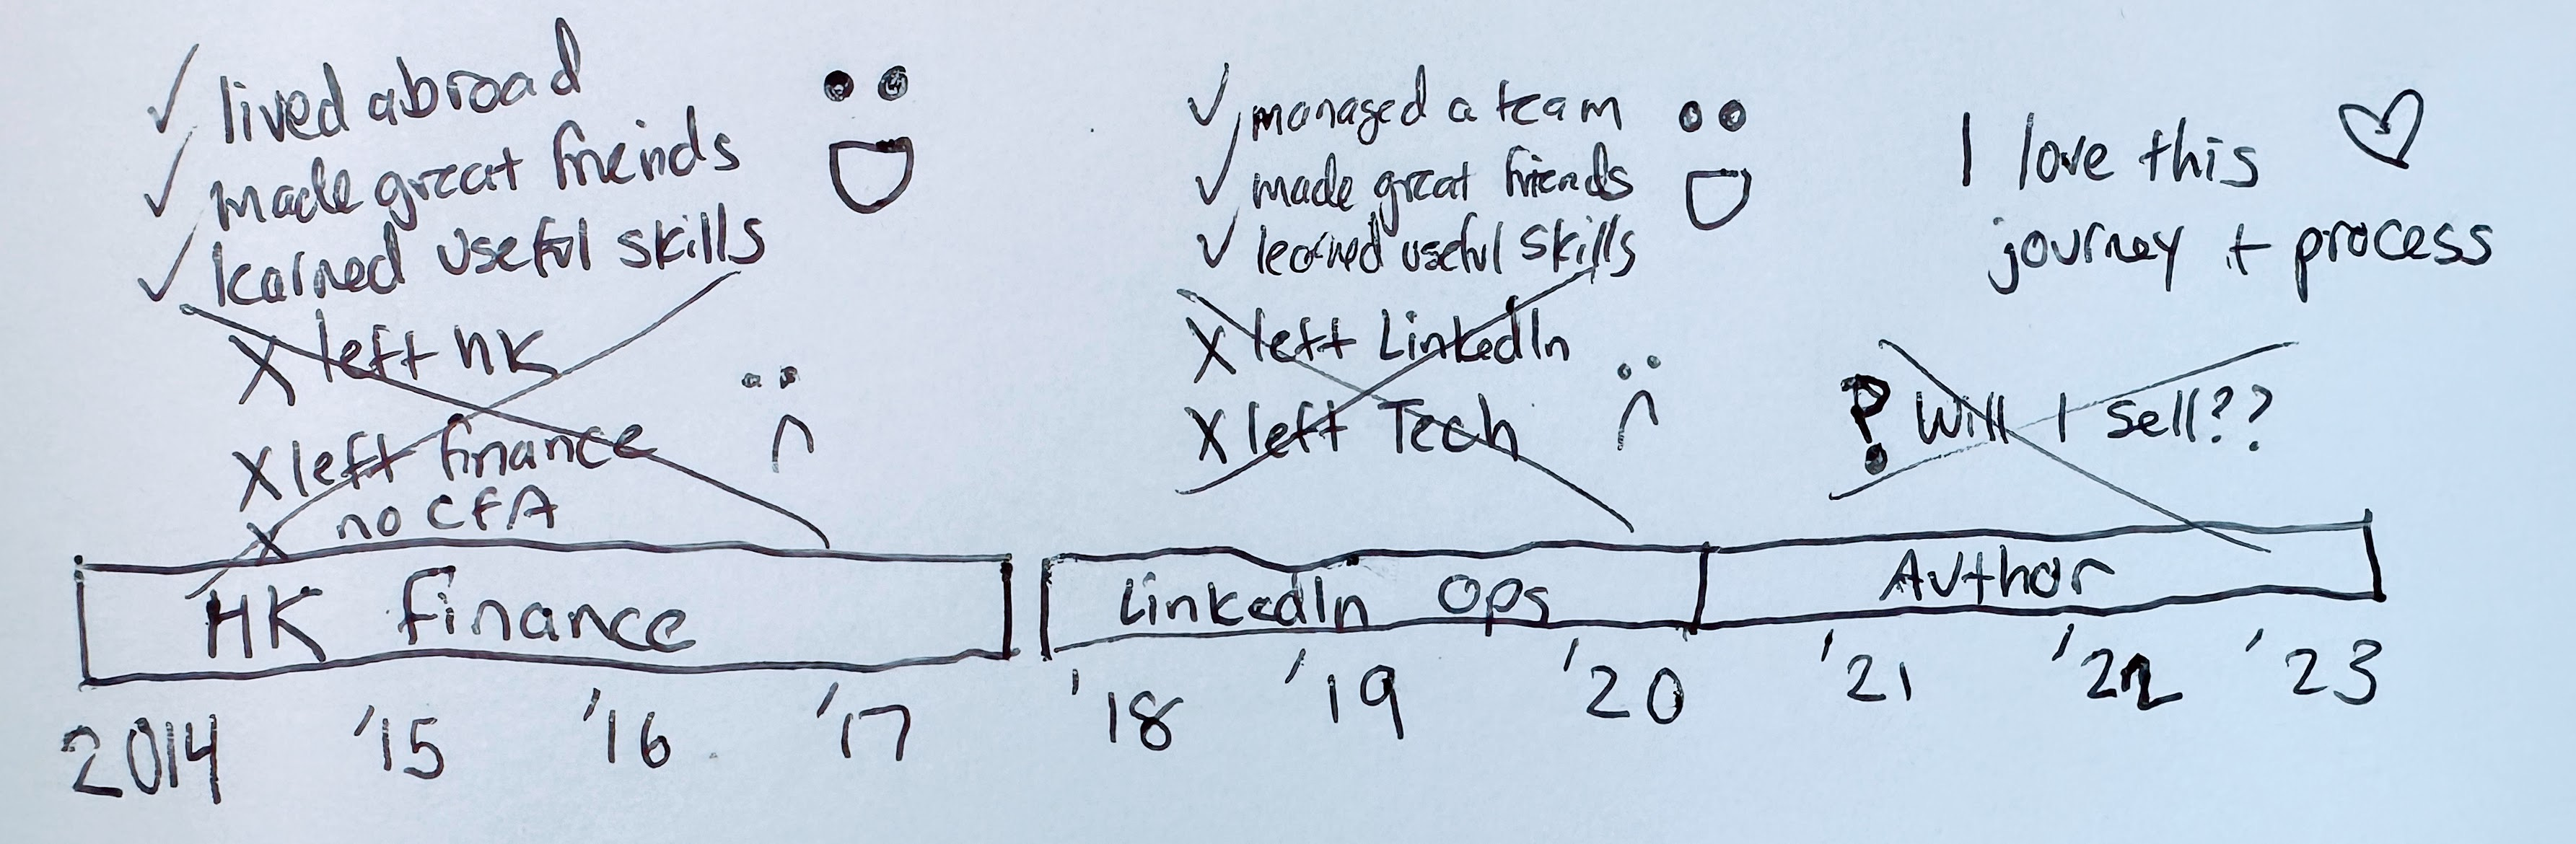 ✓ lived abroad
✓ made great freinds
✓ learned useful skills
X left HK
X left finance
X no CFA
HK finance
2014 '15 '16 '17
✓ managed a team
✓ made great friends
✓ learned useful skills
X left LinkedIn
X left Tech
LinkedIn Ops
'18 '19 '20
I love this
journey + process
? Will I sell??
Author
'21 '22 '23